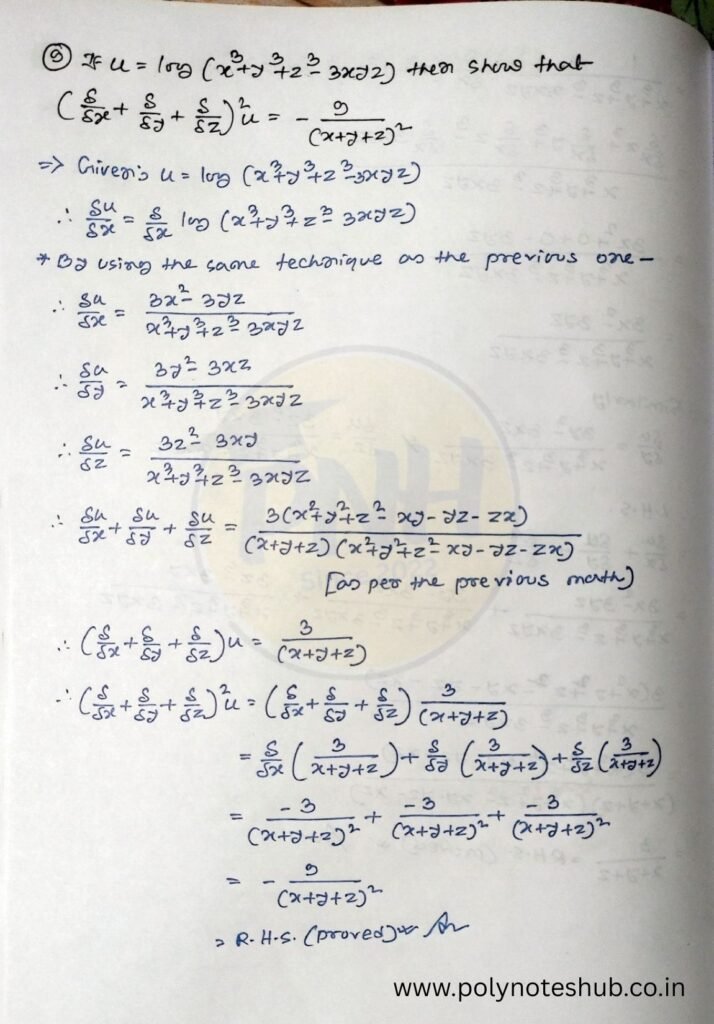 ⑨ If u = log (x³+y³+z³-3xyz) then show that
(δ/δx + δ/δy + δ/δz)² u = - 9/(x+y+z)²
=> Given:; u = log (x³+y³+z³-3xyz)
∴ δu/δx = δ/δx log (x³+y³+z³-3xyz)
* By using the same technique as the previous one -
∴ δu/δx = 3x²-3yz / x³+y³+z³-3xyz
∴ δu/δy = 3y²-3xz / x³+y³+z³-3xyz
∴ δu/δz = 3z²-3xy / x³+y³+z³-3xyz
∴ δu/δx + δu/δy + δu/δz = 3(x²+y²+z²-xy-yz-zx) / (x+y+z)(x²+y²+z²-xy-yz-zx)
[as per the previous math)
∴ (δ/δx + δ/δy + δ/δz) u = 3/(x+y+z)
∴ (δ/δx + δ/δy + δ/δz)² u = (δ/δx + δ/δy + δ/δz) 3/(x+y+z)
= δ/δx (3/x+y+z) + δ/δy (3/x+y+z) + δ/δz (3/x+y+z)
= -3/(x+y+z)² + -3/(x+y+z)² + -3/(x+y+z)²
= - 9/(x+y+z)²
= R.H.S. (proved)
PNH
www.polynoteshub.co.in